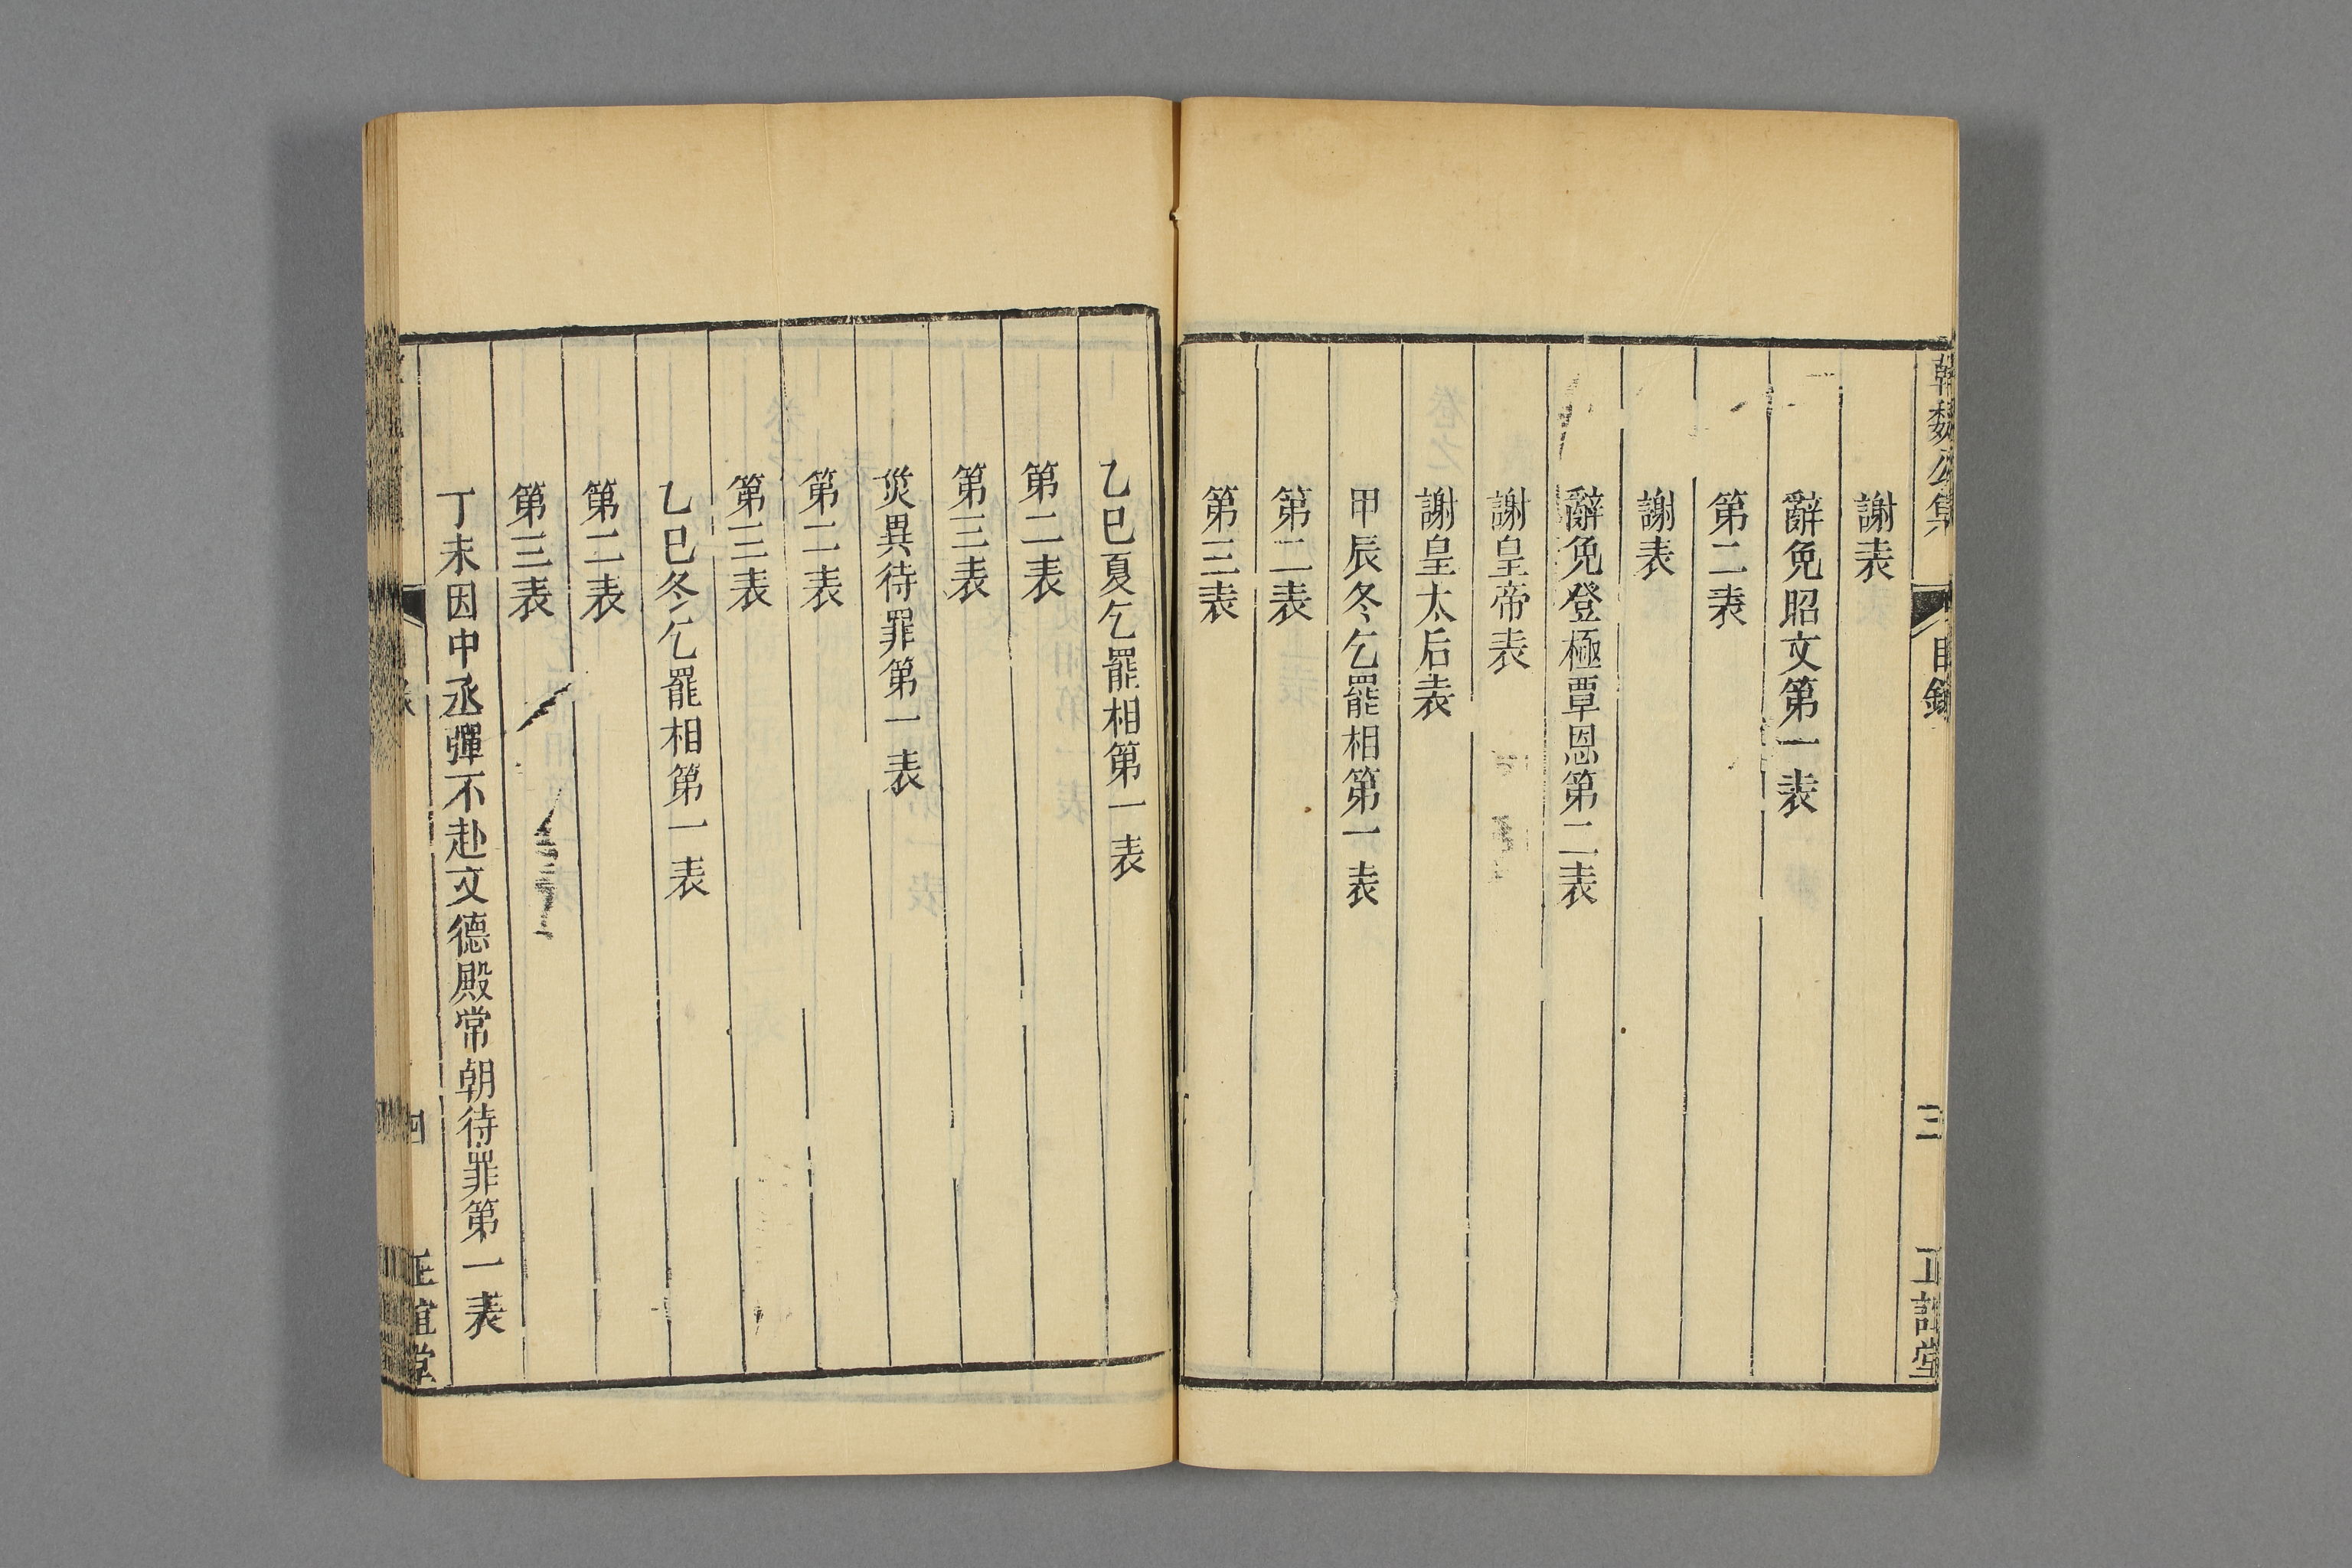 韓魏公集
目錄
三
正誼堂
謝表
辭免昭文第一表
第二表
謝表
辭免登極覃恩第二表
謝皇帝表
謝皇太后表
甲辰冬乞罷相第一表
第二表
第三表
乙巳夏乞罷相第一表
第二表
第三表
災異待罪第一表
第二表
第三表
乙巳冬乞罷相第一表
第二表
第三表
丁未因中丞彈不赴文德殿常朝待罪第一表
四
正誼堂